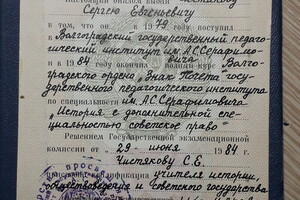 Настоящий диплом выдан
Сергею Евгеньевичу
в том, что он в 1979 году поступил
в Волгоградский государственный педаго-
гический институт им. А.С.Серафимо-
вича
и в 1984 году окончил полный курс Волго-
градского ордена „Знак Почета" госу-
дарственного педагогического института
им. А.С.Серафимовича
по специальности
„История с дополнительной спе-
циальностью советское право"
Решением Государственной экзаменационной
комиссии от 29 июня 1984 г.
Чистякову С.Е.
присвоена квалификация учителя истории,
обществоведения и советского государства